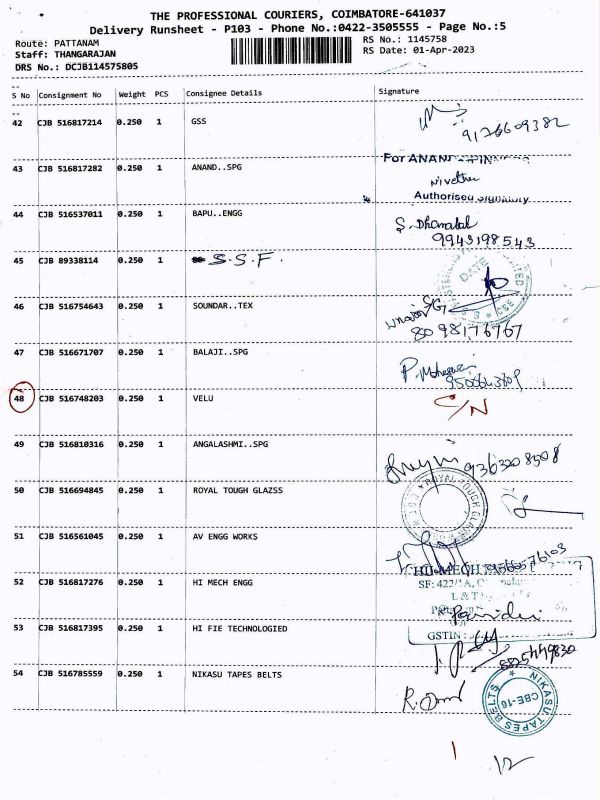 THE PROFESSIONAL COURIERS, COIMBATORE-641037
Delivery Runsheet - P103 - Phone No.:0422-3505555 - Page No.:5
Route: PATTANAM
RS No.: 1145758
Staff: THANGARAJAN
RS Date: 01-Apr-2023
DRS No.: DCJB114575805
S No Consignment No Weight PCS Consignee Details Signature
42 CJB 516817214 0.250 1 GSS
9176609382
43 CJB 516817282 0.250 1 ANAND..SPG
For ANAND
Nivetha
Authorised Signatory
44 CJB 516537011 0.250 1 BAPU..ENGG
S. Dhanabal
9943198543
45 CJB 89338114 0.250 1 S.S.F.
DATE
46 CJB 516754643 0.250 1 SOUNDAR..TEX
8098176767
47 CJB 516671707 0.250 1 BALAJI..SPG
48 CJB 516748203 0.250 1 VELU
C/N
49 CJB 516810316 0.250 1 ANGALASHMI..SPG
9363208508
50 CJB 516694845 0.250 1 ROYAL TOUGH GLAZSS
ROYAL TOUGH
51 CJB 516561045 0.250 1 AV ENGG WORKS
52 CJB 516817276 0.250 1 HI MECH ENGG
SF: 422/1A,
L & T
GSTIN :
53 CJB 516817395 0.250 1 HI FIE TECHNOLOGIED
8825449830
54 CJB 516785559 0.250 1 NIKASU TAPES BELTS
NIKASU TAPES BELTS
CBE-16
12